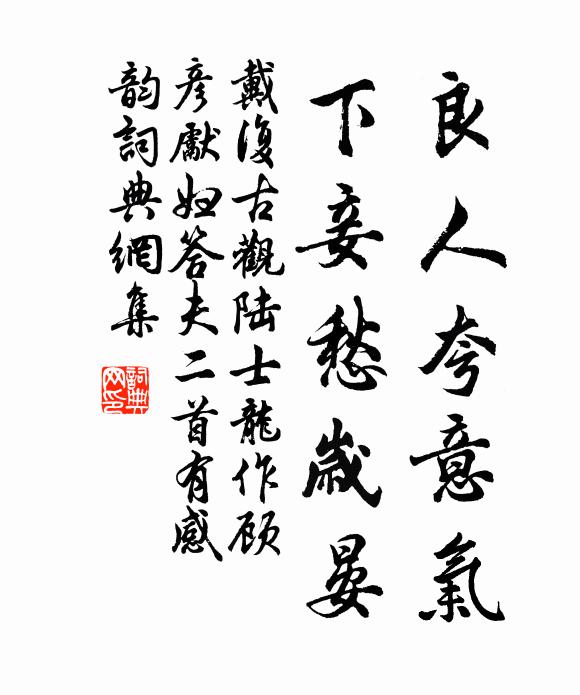 良人夸意氣
下妾愁歲晏
戴復古觀陆士龍作顾
彦獻妇答夫二首有感
韵詞典網集
詞典网印